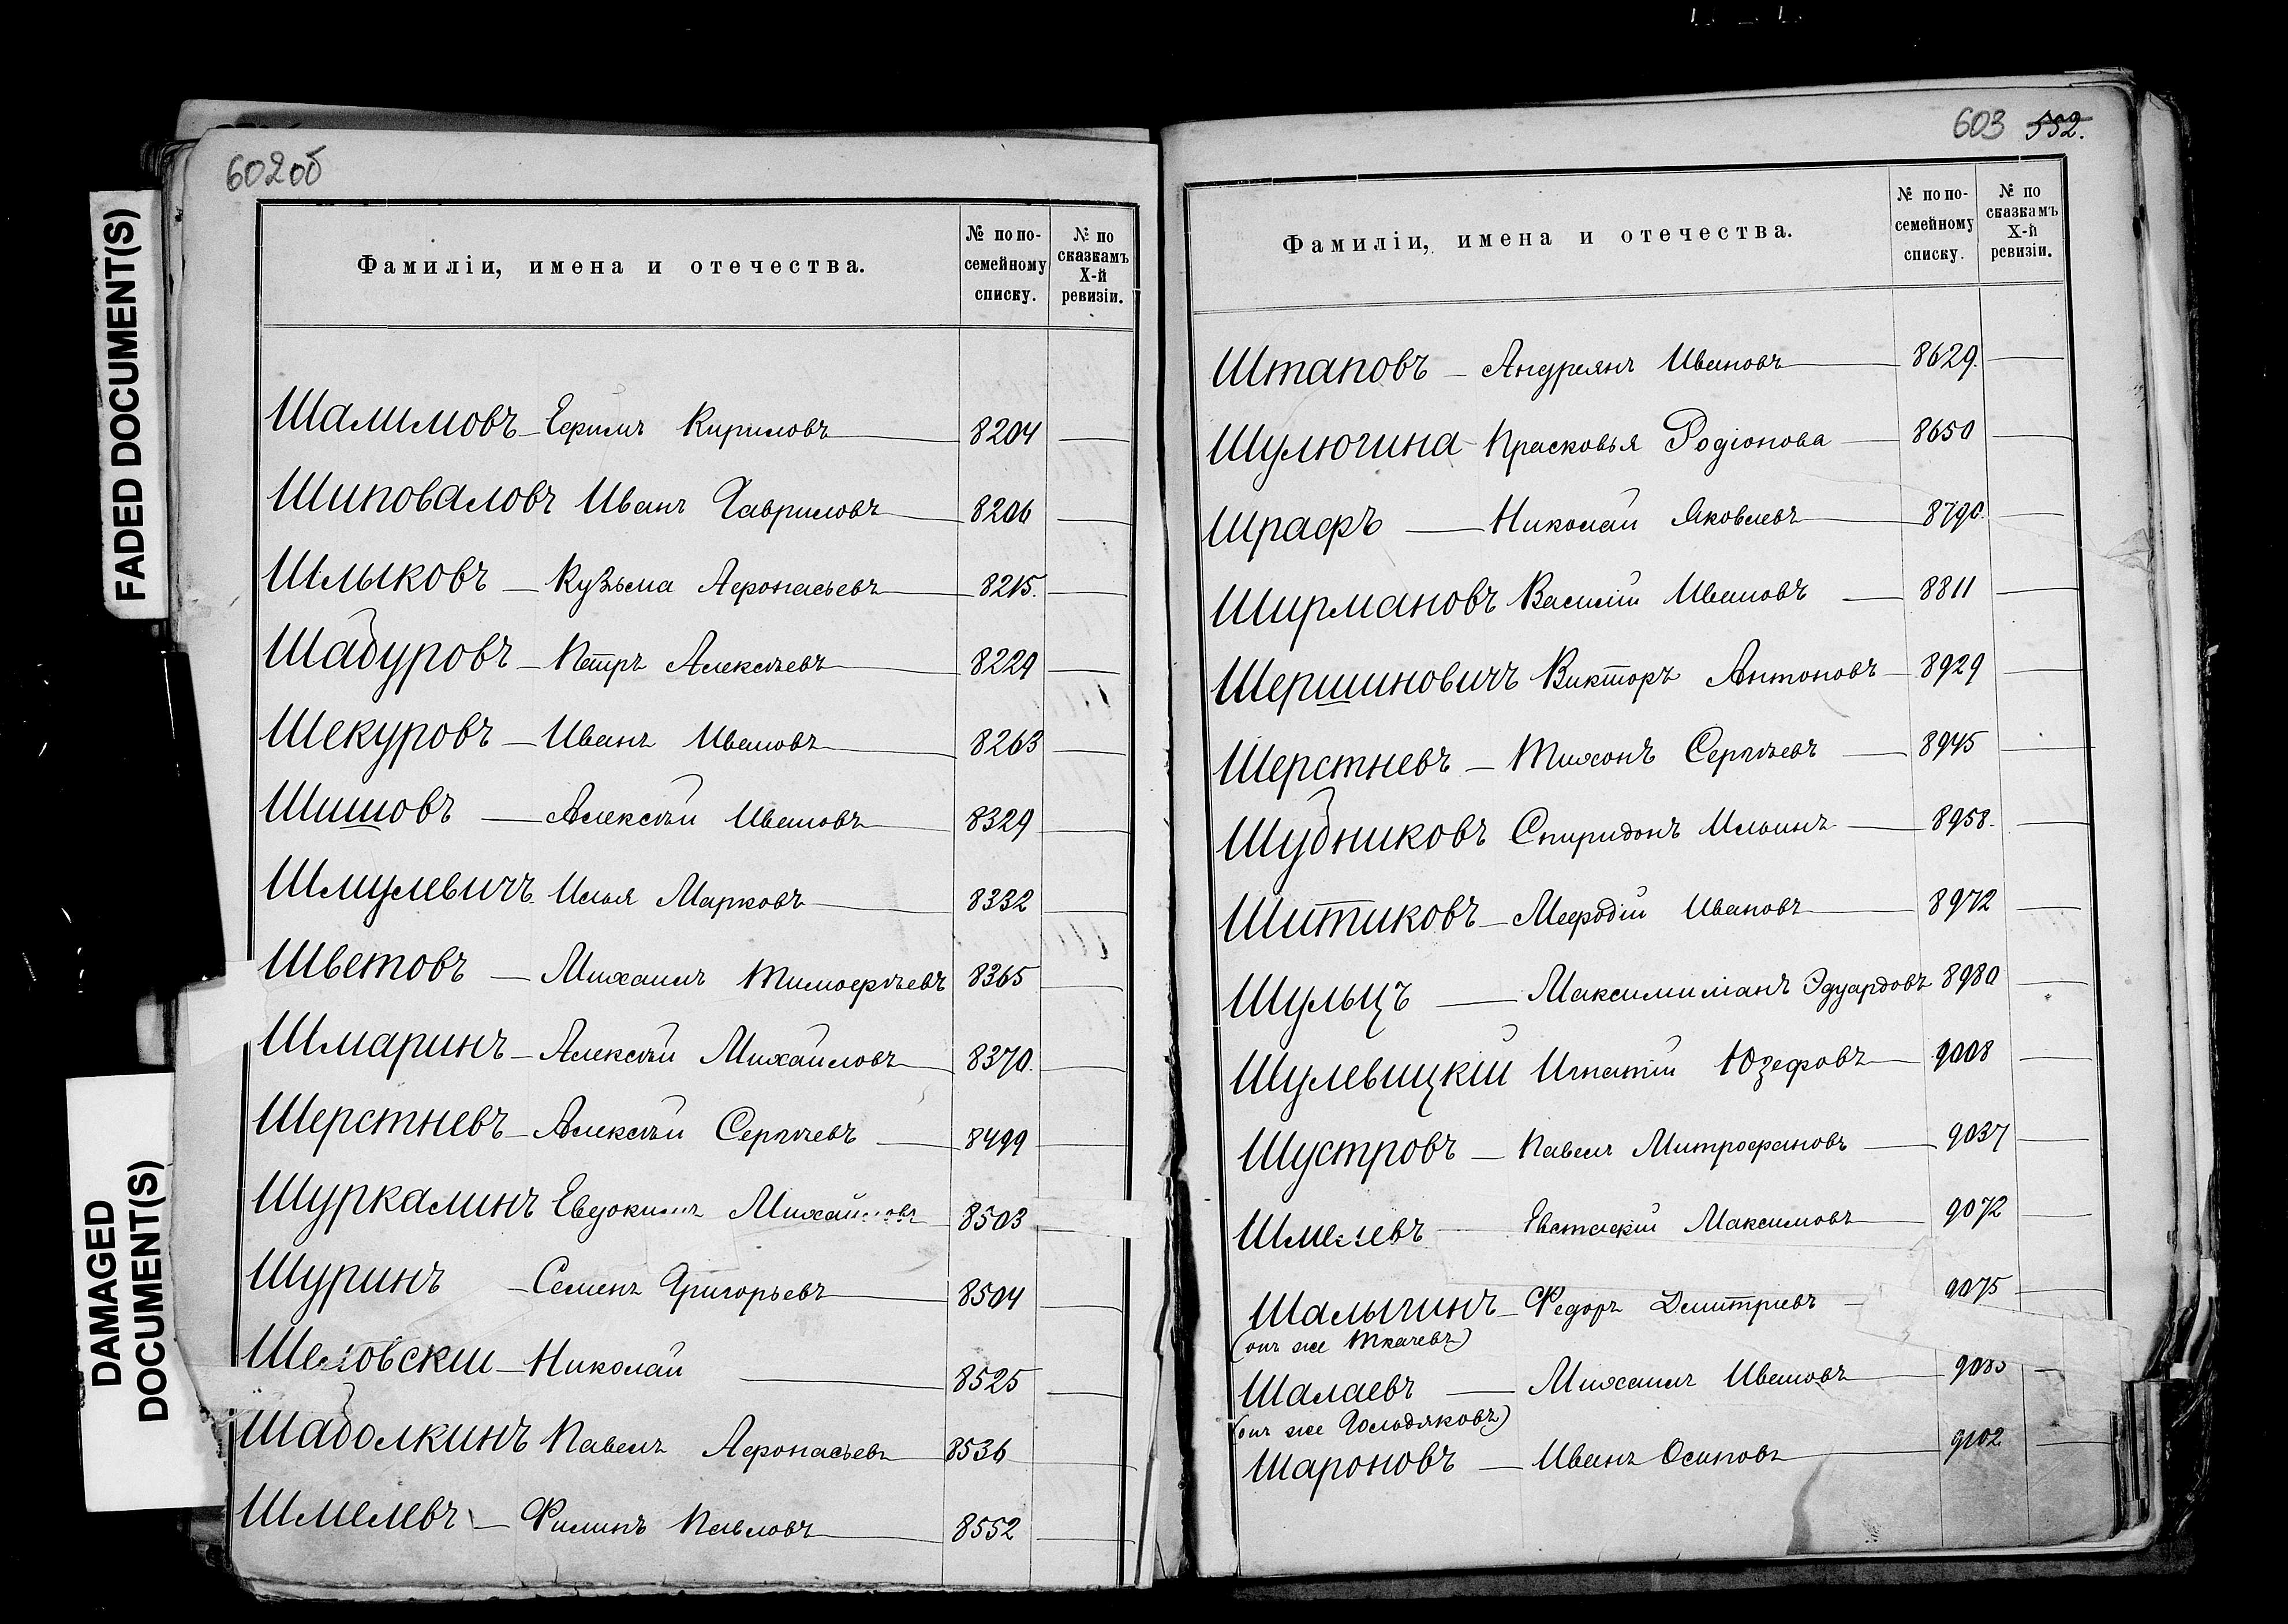 FADED DOCUMENT(S)
DAMAGED
DOCUMENT(S)
602об
Фамиліи, имена и отечества.
№ по по-
семейному
списку.
№ по
сказкамъ
X-й
ревизіи.
Шалимовъ — Ефимъ Кириловъ — 8204 —
Шиповаловъ Иванъ Гавриловъ — 8206 —
Шлыковъ — Кузьма Афонасьевъ — 8215. —
Шабуровъ — Петръ Алексѣевъ — 8229 —
Шекуровъ — Иванъ Ивановъ — 8263 —
Шишовъ — Алексѣй Ивановъ — 8329 —
Шмулевичъ. Илья Марковъ — 8332 —
Шветовъ — Михаилъ Тимофѣевъ 8365 —
Шмаринъ — Алексѣй Михайловъ — 8370. —
Шерстневъ — Алексѣй Сергѣевъ — 8499 —
Шуркалинъ Евдокимъ Михайловъ 8503 —
Шуринъ — Семенъ Григорьевъ — 8504 —
Николай — 8525 —
Шаболкинъ Павелъ Афонасьевъ 8536 —
Шмелевъ — Филипъ Павловъ — 8552 —
603 552.
Фамиліи, имена и отечества.
№ по по-
семейному
списку.
№ по
сказкамъ
X-й
ревизіи.
Штаповъ — Андреянъ Ивановъ — 8629. —
Шулюгина — Прасковья Родіонова — 8650 —
Шрафъ — Николай Яковлевъ — 8790. —
Ширмановъ Василій Ивановъ — 8811 —
Шершиновичъ Викторъ Антоновъ — 8929 —
Шерстневъ — Тихонъ Сергѣевъ — 8945 —
Шубниковъ Спиридонъ Ильинъ — 8958. —
Шитиковъ — Мефодій Ивановъ — 8972 —
Шульцъ — Максимиліанъ Эдуардовъ 8980 —
Шулевицкій Игнатій Юзефовъ — 9008 —
Шустровъ — Павелъ Митрофановъ — 9037 —
Шмелевъ — Евстафій Максимовъ — 9072 —
Шалыгинъ — Федоръ Дмитріевъ — 9075 —
(онъ же Ткачевъ)
Шалаевъ — Михаилъ Ивановъ —
(онъ же Голодяковъ)
Шароновъ — Иванъ Осиповъ — 9102 —